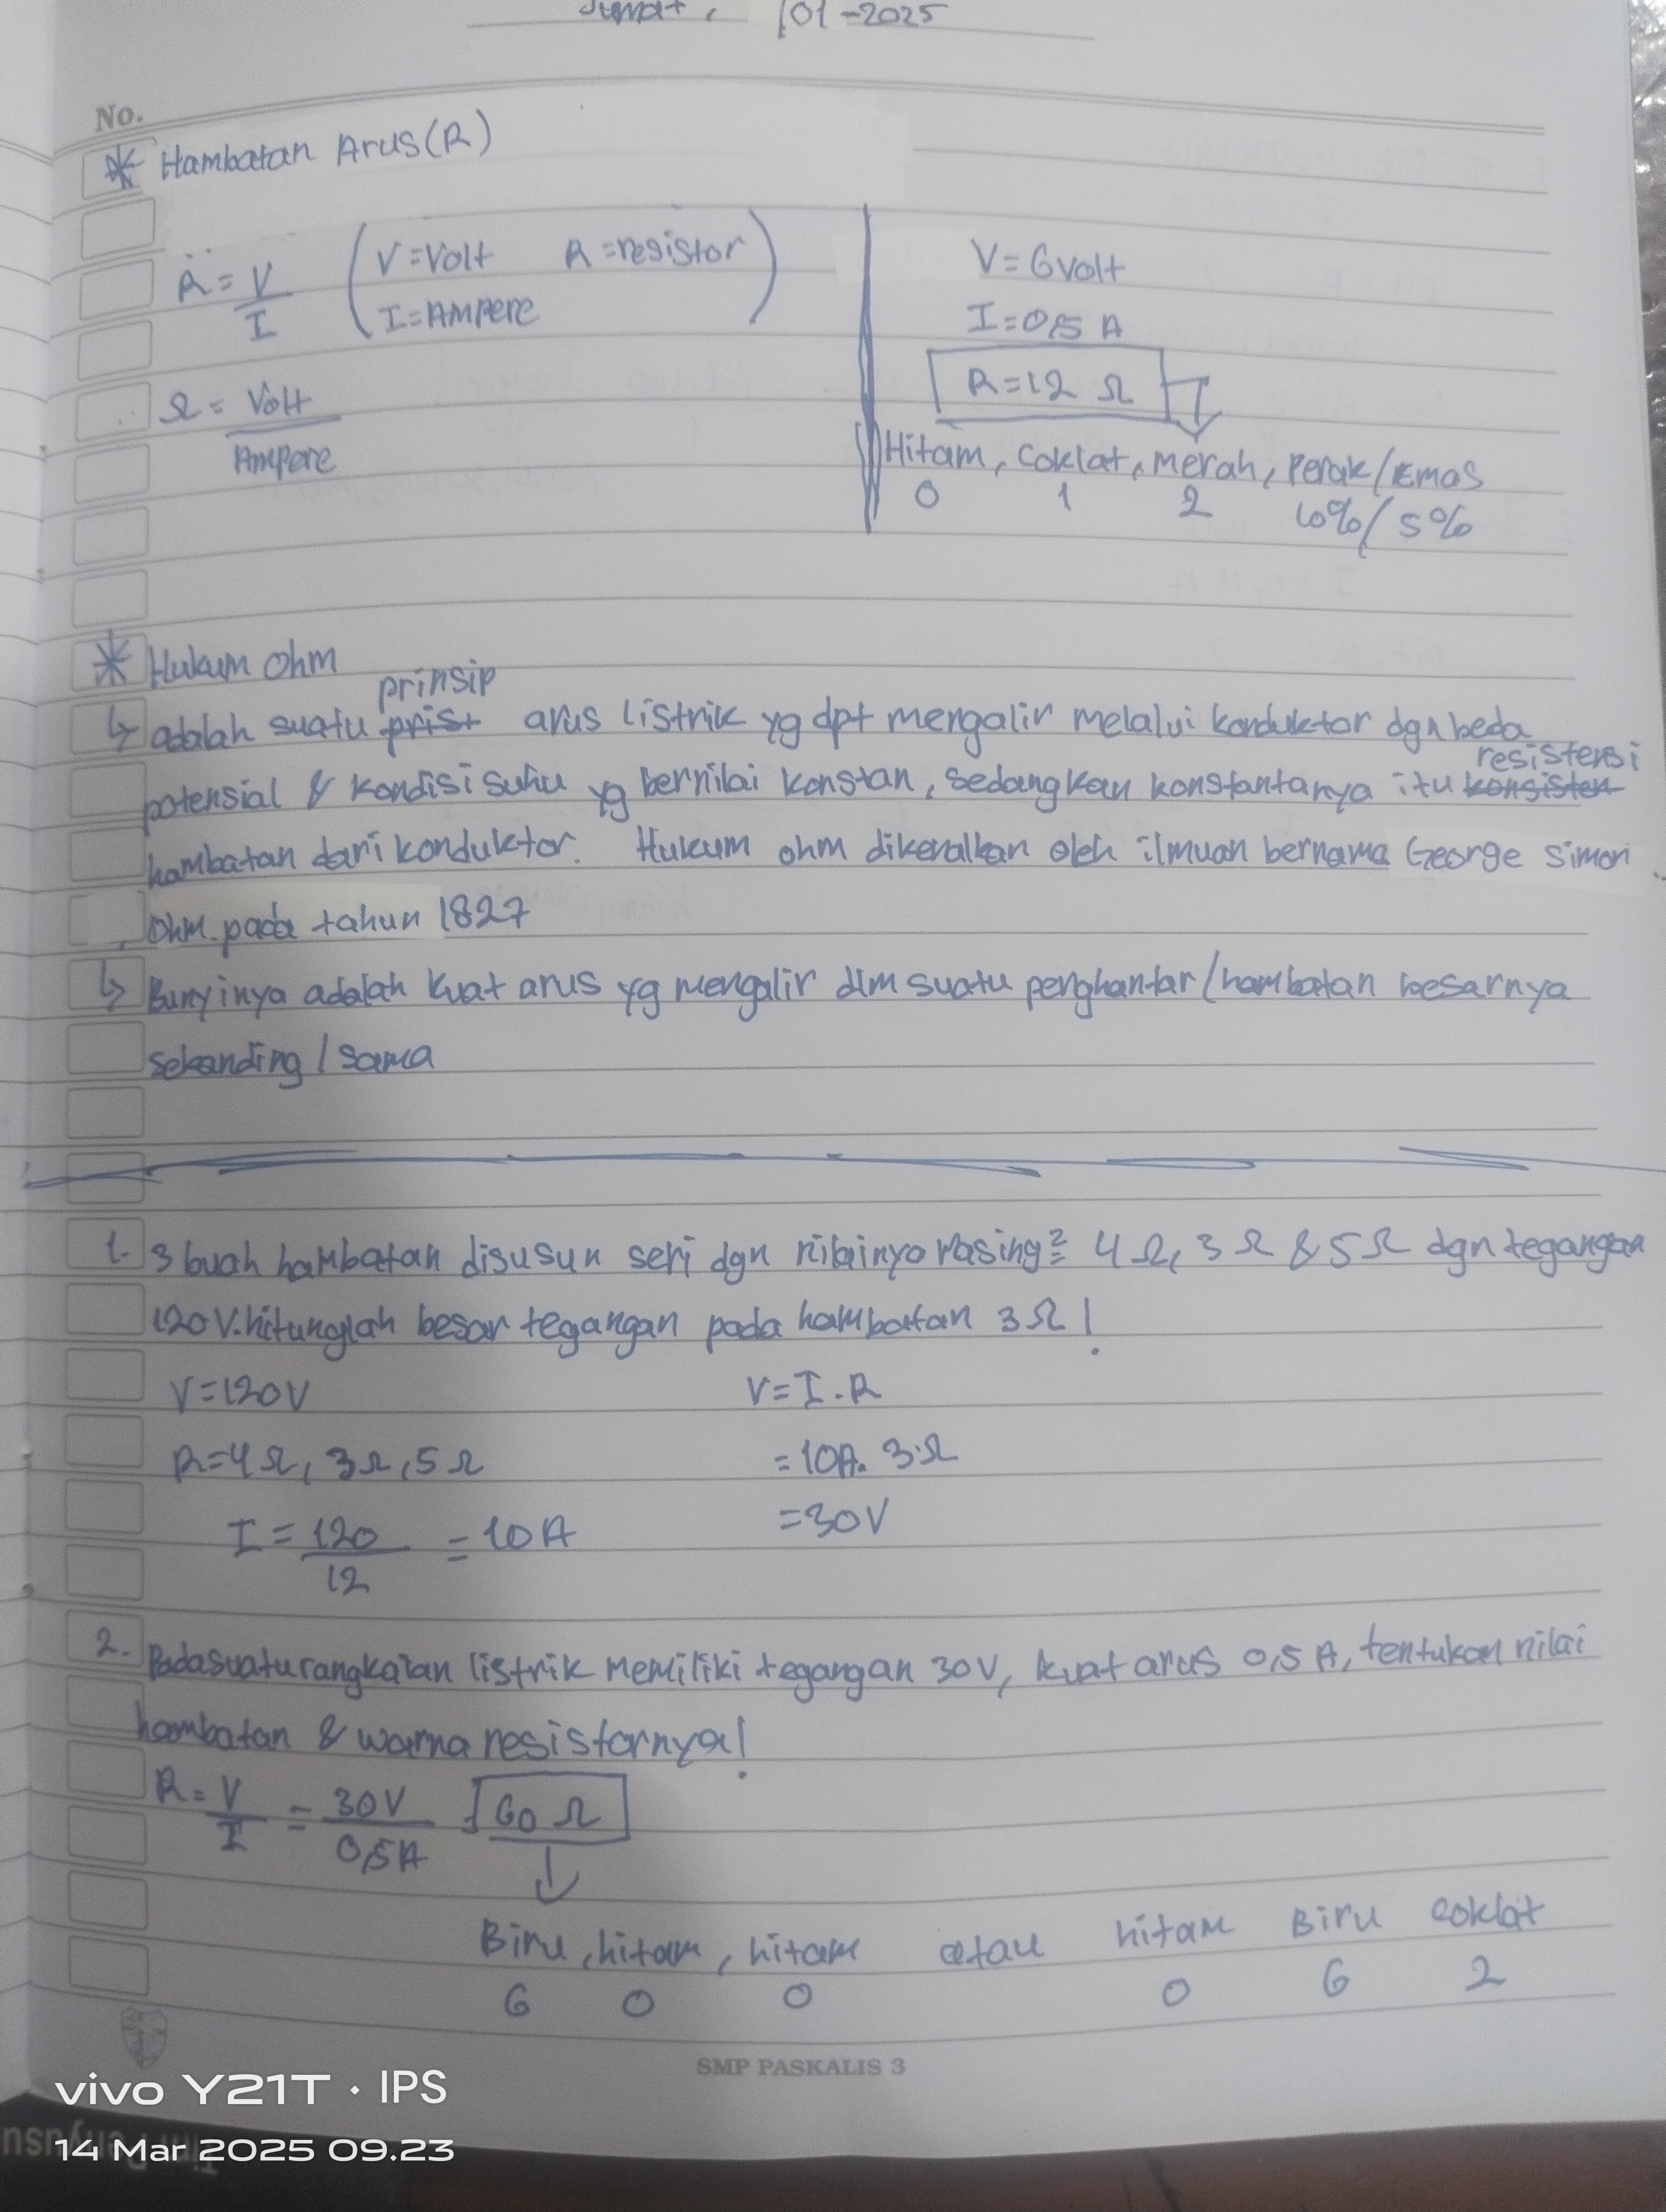 Jumat, /01-2025
No.
* Hambatan Arus (R)
R = V/I (V = Volt R = resistor
I = Ampere)
Ω = Volt/Ampere
V = 6 volt
I = 0,5 A
R = 12 Ω
Hitam, Coklat, merah, Perak/Emas
0 1 2 10%/5%
* Hukum Ohm
prinsip
↳ adalah suatu prist arus listrik yg dpt mengalir melalui konduktor dgn beda
resistensi
potensial & kondisi suhu yg bernilai konstan, sedangkan konstantanya itu konsisten
hambatan dari konduktor. Hukum ohm dikenalkan oleh ilmuan bernama George Simon
Ohm. pada tahun 1827
↳ Bunyinya adalah kuat arus yg mengalir dlm suatu penghantar/hambatan besarnya
sebanding / sama
1. 3 buah hambatan disusun seri dgn nilainya masing² 4 Ω, 3 Ω & 5 Ω dgn tegangan
120 V. hitunglah besar tegangan pada hambatan 3 Ω!
V = 120 V V = I . R
R = 4 Ω, 3 Ω, 5 Ω = 10A. 3 Ω
I = 120/12 = 10 A = 30 V
2. Pada suatu rangkaian listrik memiliki tegangan 30 V, kuat arus 0,5 A, tentukan nilai
hambatan & warna resistornya!
R = V/I = 30 V/0,5 A = 60 Ω
↓
Biru, hitam, hitam atau hitam Biru coklat
6 0 0 0 6 2
SMP PASKALIS 3
vivo Y21T · IPS
14 Mar 2025 09.23